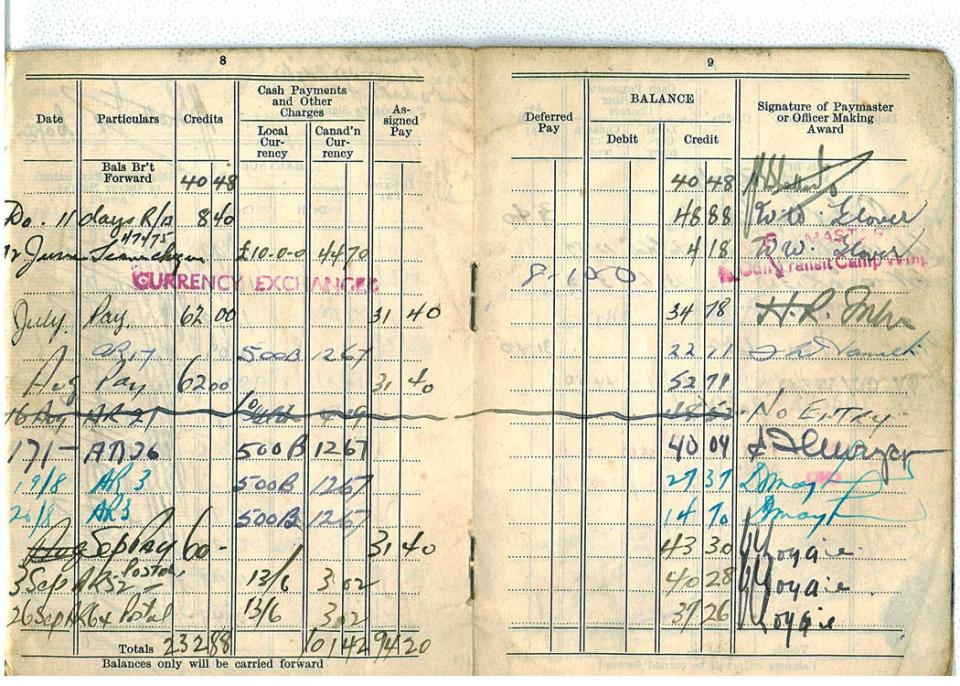 8
Date Particulars Credits Cash Payments and Other Charges Local Currency Canad'n Currency Assigned Pay
Bals Br't Forward 40 48
Do. 11 days R/A 8 40
12 June £10-0-0 44 70
CURRENCY EXCHANGED
July. Pay. 62 00 31 40
AR 17 500B 12 67
Aug Pay 62 00 31 40
16 Aug AR 21
17/- AR 26 500B 12 67
19/8 AR 3 500B 12 67
26/8 AR3 500B 12 67
Aug Sep Pay 60 - 31 40
3 Sep AR52 Postal 13/6 3 02
26 Sep AR64 Postal 13/6 3 02
Totals 232 88 101 42 94 20
Balances only will be carried forward
9
Deferred Pay BALANCE Debit Credit Signature of Paymaster or Officer Making Award
40 48
48 88 W.W. Glover
4 18 W.W. Glover
Transit Camp
34 78 H.R.
22 11
52 71
No Entry
40 04
27 37
14 70
43 30
40 28
37 26